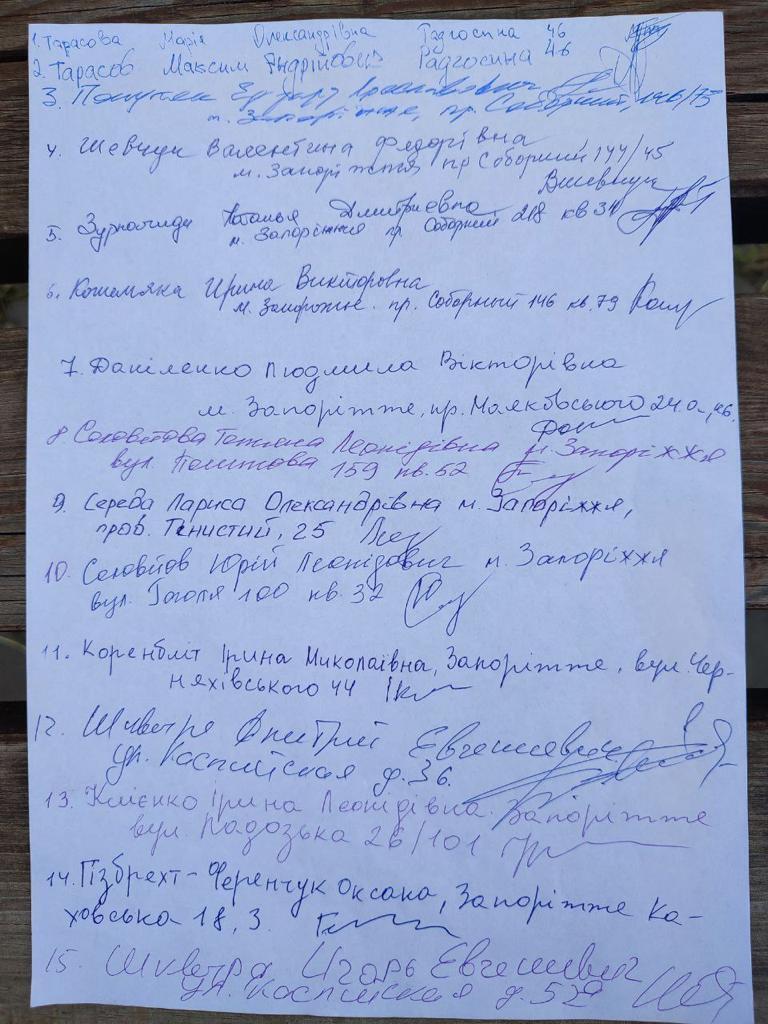 1. Тарасова Марія Олександрівна Радгоспна 46
2. Тарасов Максим Андрійович Радгоспна 46
3.
м. Запоріжжя, пр. Соборний, 146/75
4. Шевчук Валентина Федорівна
м. Запоріжжя пр Соборний 177/45
ВШевчук
5. Наталья Дмитриевна
м. Запоріжжя пр Соборний 218 кв 34
6. Кошемяка Ирина Викторовна
м. Запорожье. пр. Соборный 146 кв. 79
7. Даніленко Людмила Вікторівна
м. Запоріжже, пр. Маяковського 24а, кв.
8. Соловйова Тетяна Леонідівна м. Запоріжжя
вул. Поштова 159 кв. 52
9. Середа Лариса Олександрівна м. Запоріжжя,
пров. Тінистий, 25
10. Соловйов Юрій Леонідович м. Запоріжжя
вул. Гоголя 100 кв. 32
11. Коренбліт Ірина Миколаївна, Запоріжже, вул. Чер-
няхівського 44
12. Шкветра Дмитрий Евгениевич
ул. Каспийская д. 36.
13. Клієнко Ірина Леонідівна Запоріжже
вул. Ладозька 26/101
14. Гізбрехт-Ференчук Оксана, Запоріжже Ка-
ховська 18, 3.
15. Шкветра Игорь Евгениевич
ул. Каспийская д. 529